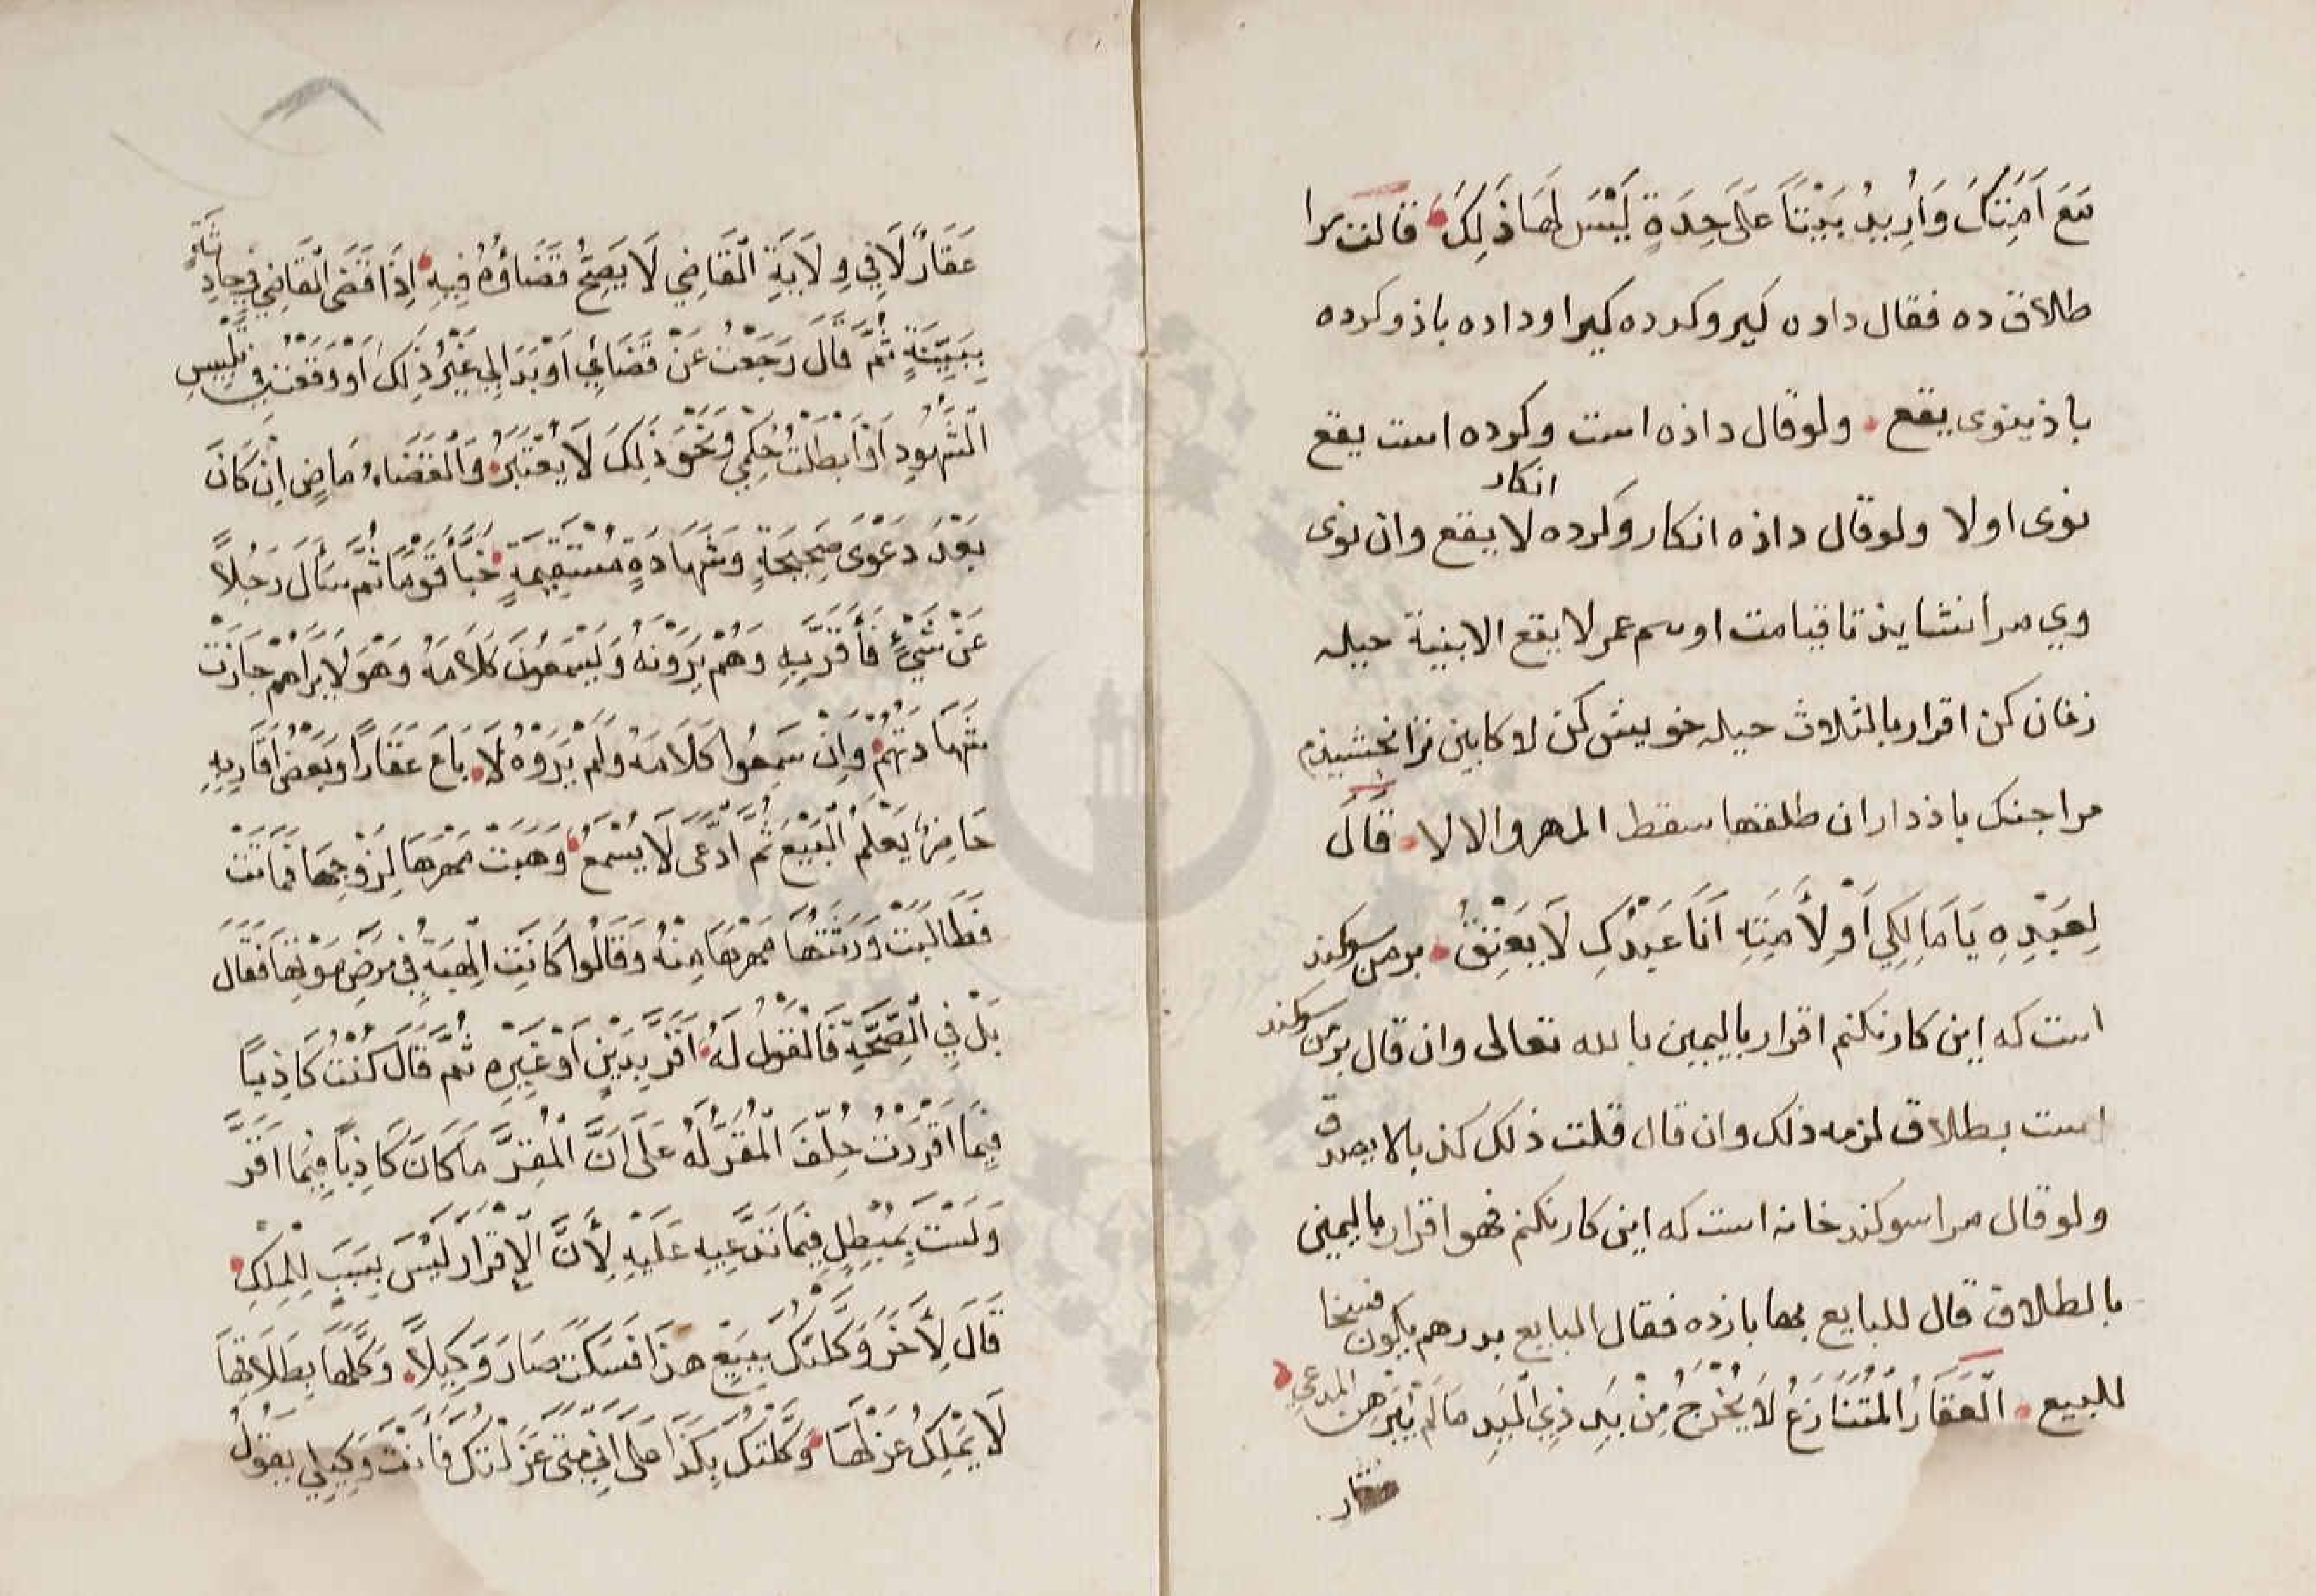 مَعَ اَمَتِكَ وَاُرِيدُ بَيْتًا عَلَى حِدَةٍ لَيْسَ لَهَا ذَلِكَ قالت مرا
طلاق ده فقال داده كير وكرده كير او داده باذ وكرده
باذ ينوى يقع ولو قال داذه است وكرده است يقع
نوى اولا ولو قال داذه انكار وكرده انكار لا يقع وان نوى
وي مرا نشايذ تا قيامت او همه عمر لا يقع الا بنية حيله
زنان كن اقرار بالثلاث حيله خويش كن لا كابين ترا بخشيذم
مرا جنك باذدار ان طلقها سقط المهر والا لا قَالَ
لِعَبْدِهِ يَا مَالِكِي اَوْ لِأَمَتِهِ اَنَا عَبْدُكِ لَا يَعْتِقُ بر من سوكند
است كه اين كار نكنم اقرار باليمين بالله تعالى وان قال بر من سوكند
است بطلاق لزمه ذلك وان قال قلت ذلك كذبا لا يصدق
ولو قال مرا سوكند خانه است كه اين كار نكنم فهو اقرار باليمين
بالطلاق قال للبايع بها باز ده فقال البايع بدهم يكون فسخا
للبيع الْعَقَارُ الْمُتَنَازَعُ لَا يُخْرَجُ مِنْ يَدِ ذِي الْيَدِ مَا لَمْ يُبَرْهِنِ المدعي
عقار
عَقَارٌ لَا فِي وِلَايَةِ الْقَاضِي لَا يَصِحُّ قَضَاؤُهُ فِيهِ اِذَا قَضَى الْقَاضِي فِي حَادِثَةٍ
بِبَيِّنَةٍ ثُمَّ قَالَ رَجَعْتُ عَنْ قَضَائِي اَوْ بَدَا لِي غَيْرُ ذَلِكَ اَوْ وَقَعْتُ فِي تَلْبِيسِ
الشُّهُودِ اَوْ اَبْطَلْتُ حُكْمِي وَنَحْوَ ذَلِكَ لَا يُعْتَبَرُ وَالْقَضَاءُ مَاضٍ اِنْ كَانَ
بَعْدَ دَعْوَى صَحِيحَةٍ وَشَهَادَةٍ مُسْتَقِيمَةٍ خَبَّأَ قَوْمًا ثُمَّ سَأَلَ رَجُلًا
عَنْ شَيْءٍ فَأَقَرَّ بِهِ وَهُمْ يَرَوْنَهُ وَيَسْمَعُونَ كَلَامَهُ وَهُوَ لَا يَرَاهُمْ جَازَتْ
شَهَادَتُهُمْ وَاِنْ سَمِعُوا كَلَامَهُ وَلَمْ يَرَوْهُ لَا بَاعَ عَقَارًا وَبَعْضُ اَقَارِبِهِ
حَاضِرٌ يَعْلَمُ الْبَيْعَ ثُمَّ ادَّعَى لَا يُسْمَعُ وَهَبَتْ مَهْرَهَا لِزَوْجِهَا فَمَاتَتْ
فَطَالَبَتْ وَرَثَتُهَا مَهْرَهَا مِنْهُ وَقَالُوا كَانَتِ الْهِبَةُ فِي مَرَضِ مَوْتِهَا فَقَال
بَلْ فِي الصِّحَّةِ فَالْقَوْلُ لَهُ اَقَرَّ بِدَيْنٍ اَوْ غَيْرِهِ ثُمَّ قَالَ كُنْتُ كَاذِبًا
فِيمَا اَقْرَرْتُ حُلِّفَ الْمُقَرُّ لَهُ عَلَى اَنَّ الْمُقِرَّ مَا كَانَ كَاذِبًا فِيمَا اَقَرَّ
وَلَسْتَ بِمُبْطِلٍ فِيمَا تَدَّعِيهِ عَلَيْهِ لِأَنَّ الْإِقْرَارَ لَيْسَ بِسَبَبٍ لِلْمِلْكِ
قَالَ لِأَخَرَ وَكَّلْتُكَ بِبَيْعِ هَذَا فَسَكَتَ صَارَ وَكِيلًا وَكَّلَهَا بِطَلَاقِهَا
لَا يَمْلِكُ عَزْلَهَا وَكَّلْتُكَ بِكَذَا عَلَى اَنِّي مَتَى عَزَلْتُكَ فَاَنْتَ وَكِيلِي يَقُولُ